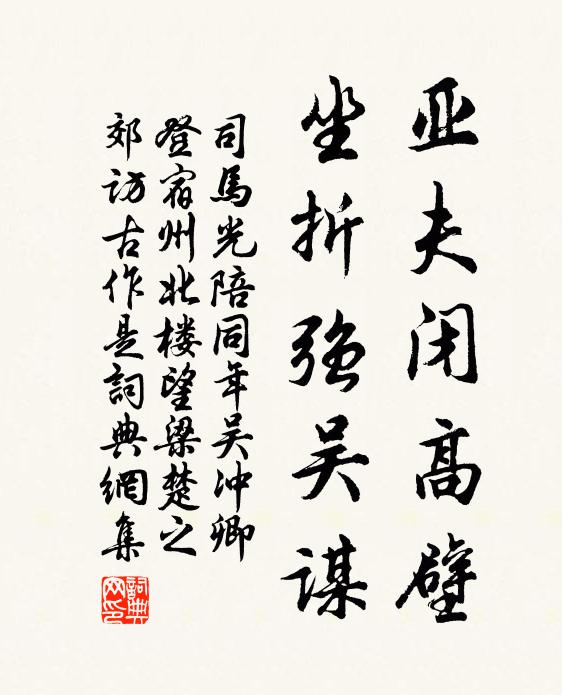 亚夫闭高壁
坐折强吴谋
司馬光陪同年吴冲卿
登宿州北楼望梁楚之
郊访古作是詞典網集
詞典网印